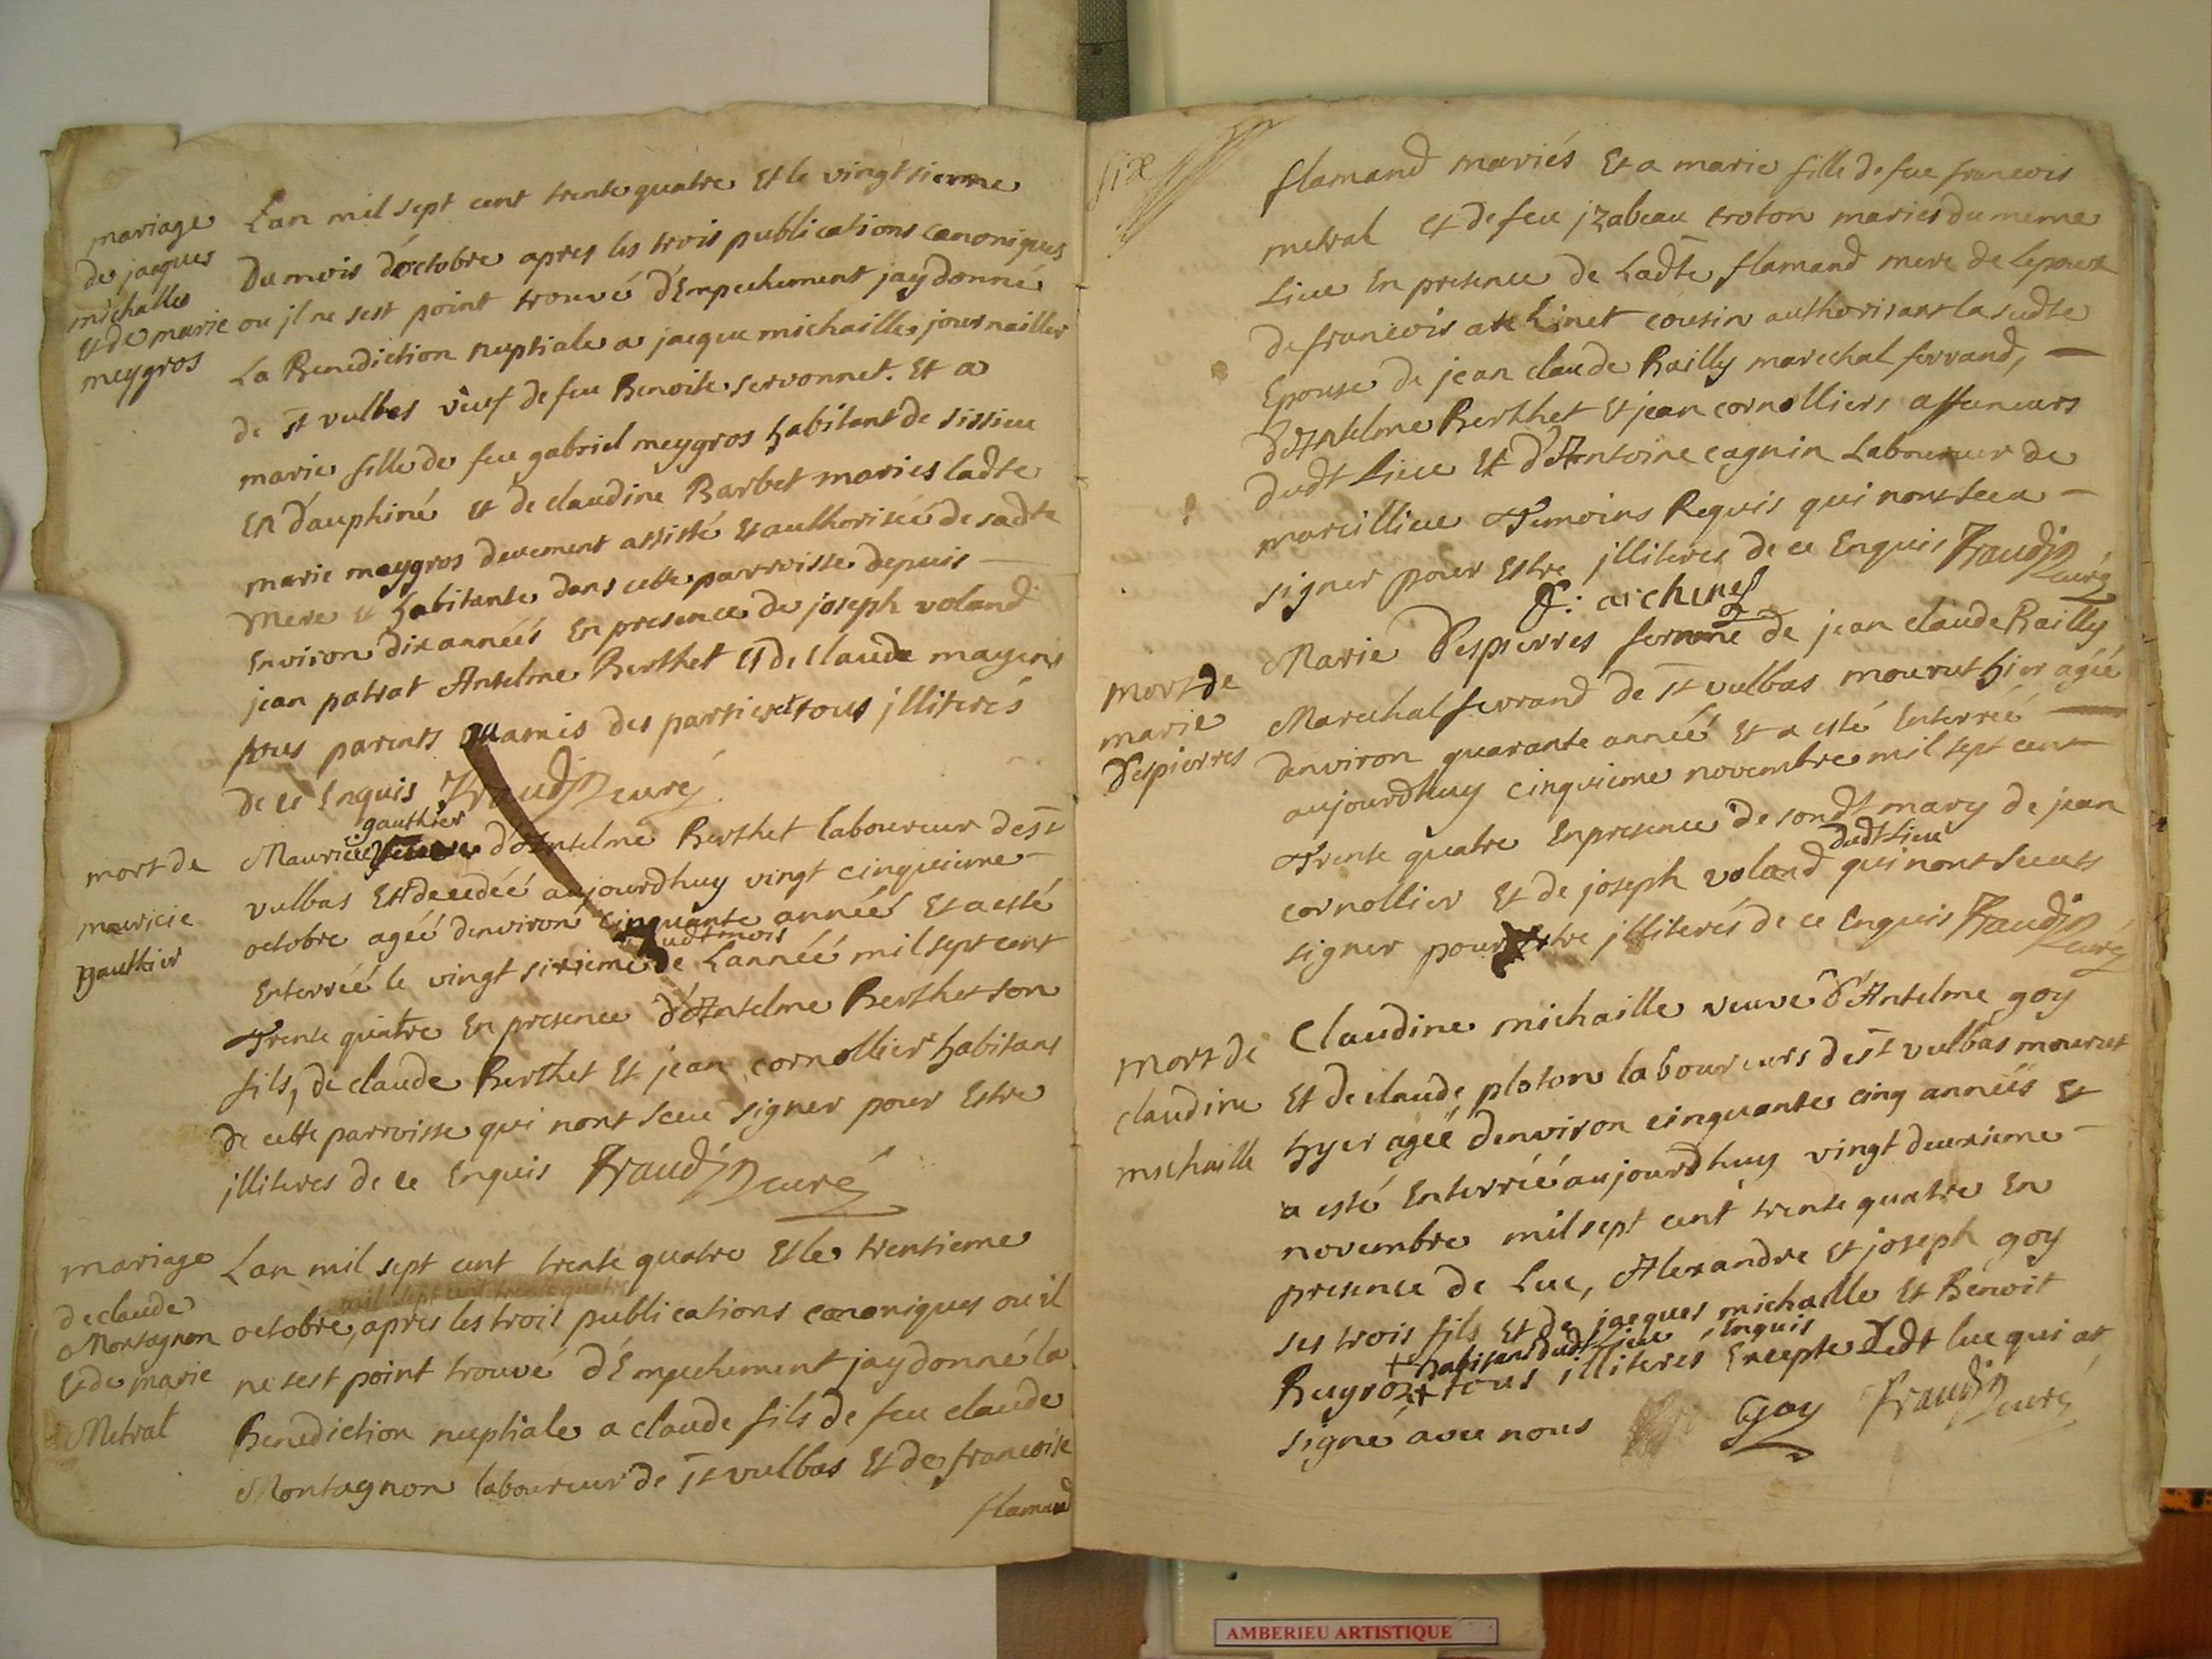 mariage
de jacques
michalle
Et de marie
meygros
Lan mil sept cent trente quatre Et le vingt sieme
Du mois d'octobre apres les trois publications canoniques
ou jl ne sest point trouvé d'Empechement jay donné
La Benediction nuptiale a jacque michaille journailler
de st vulbas veuf de feu Benoite servonnet. Et a
marie fille de feu gabriel meygros habitant de sissieu
En dauphiné et de claudine Barbet mariés ladte
marie meygros deuement assisté Et authorisée de sadte
mere et habitante dans cette parroisse depuis
Environ dix années En presence de joseph voland
jean patrat Antelme Berthet Et de Claude
tous parents ou amis des parties et tous jlliterés
de ce Enquis Fraud curé
mort de
mauricie
gauthier
gauthier
Mauricie d'Antelme Berthet laboureur de st
vulbas Est decedéé aujourdhuy vingt cinquieme
octobre agéé denviron cinquante année Et a esté
dudt mois
Enterréé le vingt sixieme de Lannéé mil sept cent
Trente quatre En presence d'Antelme Berthet son
fils, de claude Berthet Et jean cornollier habitans
de cette parroisse qui nont sceu signer pour Estre
jlliteres de ce Enquis Fraud curé
mariage
de claude
Montagnon
Et de marie
Metral
Lan mil sept cent trente quatre Et le trentieme
mil sept cent trente quatre
octobre, apres les trois publications canoniques ou il
ne sest point trouvé d'Empechement jay donné la
Benediction nuptiale a claude fils de feu claude
Montagnon laboureur de st vulbas Et de francoise
flamand
six
flamand mariés Et a marie fille de feu francois
metral et de feu jzabeau troton mariés du meme
Lieu En presence de Ladte flamand mere de lepoux
de francois archinet cousin authorisant la sudte
Epouse de jean claude Bailly marechal ferrand,
d'Antelme Berthet Et jean cornolliers affaneurs
dudt Lieu Et d'Antoine cagnin Laboureur de
marcillieu Temoins Requis qui nont sceu
signer pour Estre jlliteres de ce Enquis Fraud curé
f: archinet
mort de
marie
Despierres
Marie Despierres femme de jean claude Bailly
Marechal ferrand de st vulbas mourut hier agéé
denviron quarante année Et a esté Enterréé
aujourdhuy cinquieme novembre mil sept cent
Trente quatre En presence de sondt mary de jean
dudt Lieu
cornollier Et de joseph voland qui nont sceuts
signer pour Estre jlliterés de ce Enquis Fraud curé
mort de
claudine
michaille
Claudine michaille veuve d'Antelme goy
Et de claude ploton laboureurs de st vulbas mourut
hyer agéé denviron cinquante cinq années Et
a esté Enterréé aujourdhuy vingt deuxieme
novembre mil sept cent trente quatre En
presence de Luc, Alexandre Et joseph goy
ses trois fils Et de jacques michaille Et Benoit
+ habitans dudt Lieu Enquis
+ tous illiteres Excepte Ledt luc qui at
signé avec nous Goy Fraud curé
AMBERIEU ARTISTIQUE